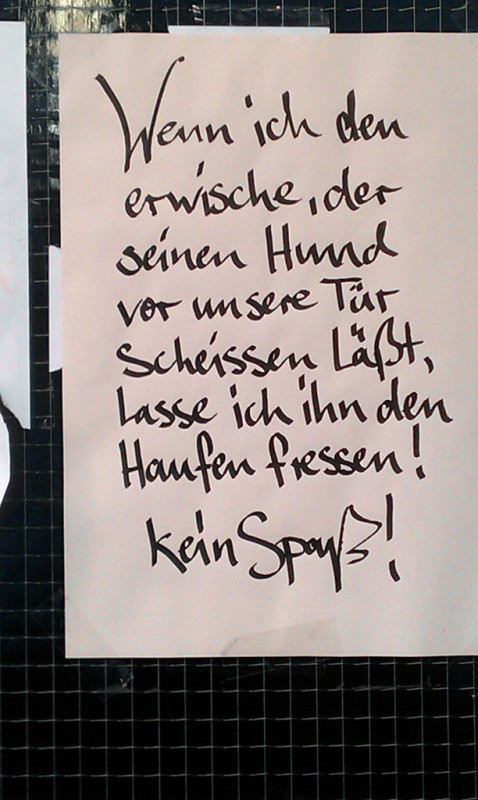 Wenn ich den
erwische, der
seinen Hund
vor unsere Tür
Scheissen Läßt,
Lasse ich ihn den
Haufen fressen!
kein Spaß!